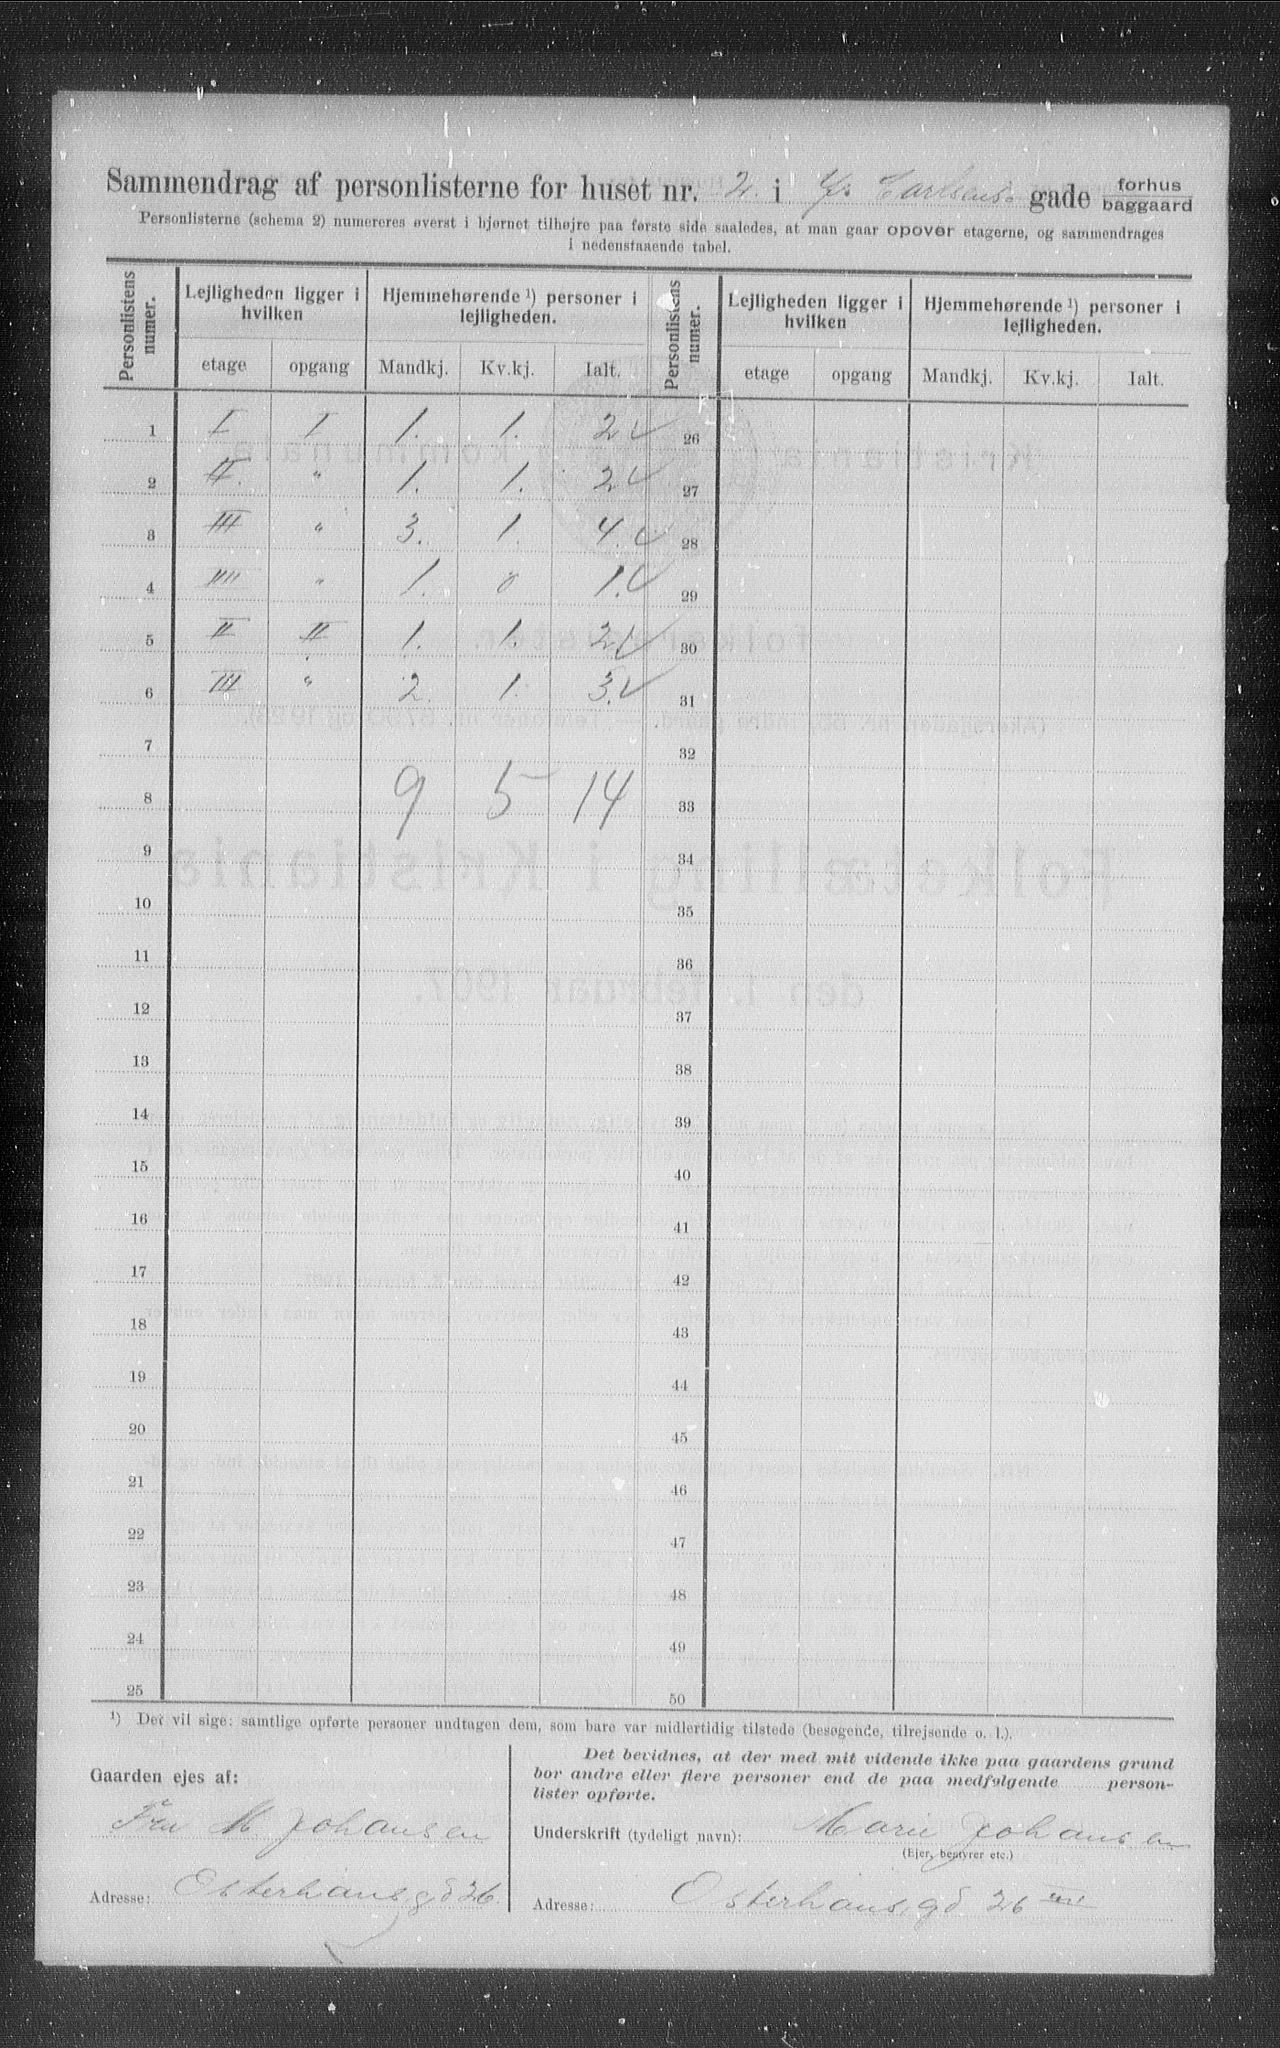 Sammendrag af personlisterne for huset nr. 2. i Carlsens gade forhus
baggaard
Personlisterne (schema 2) numereres øverst i hjørnet tilhøjre paa første side saaledes, at man gaar opover etagerne, og sammendrages
i nedenstaaende tabel.
Personlistens numer. Lejligheden ligger i hvilken Hjemmehørende ¹) personer i lejligheden. Personlistens numer. Lejligheden ligger i hvilken Hjemmehørende ¹) personer i lejligheden.
etage opgang Mandkj. Kv.kj. Ialt. etage opgang Mandkj. Kv.kj. Ialt.
1 I I 1. 1. 2 ✓ 26
2 II. " 1. 1. 2 ✓ 27
3 III " 3. 1. 4. ✓ 28
4 IIII " 1. 0 1. ✓ 29
5 II II 1. 1. 2 ✓ 30
6 III " 2. 1. 3. ✓ 31
7 32
8 9 5 14 33
9 34
10 35
11 36
12 37
13 38
14 39
15 40
16 41
17 42
18 43
19 44
20 45
21 46
22 47
23 48
24 49
25 50
¹) Det vil sige: samtlige opførte personer undtagen dem, som bare var midlertidig tilstede (besøgende, tilrejsende o. l.).
Gaarden ejes af:
Fru M Johansen
Adresse: Osterhausgd 26
Det bevidnes, at der med mit vidende ikke paa gaardens grund
bor andre eller flere personer end de paa medfølgende person-
lister opførte.
Underskrift (tydeligt navn): Marie Johansen
(Ejer, bestyrer etc.)
Adresse: Osterhausgd 26